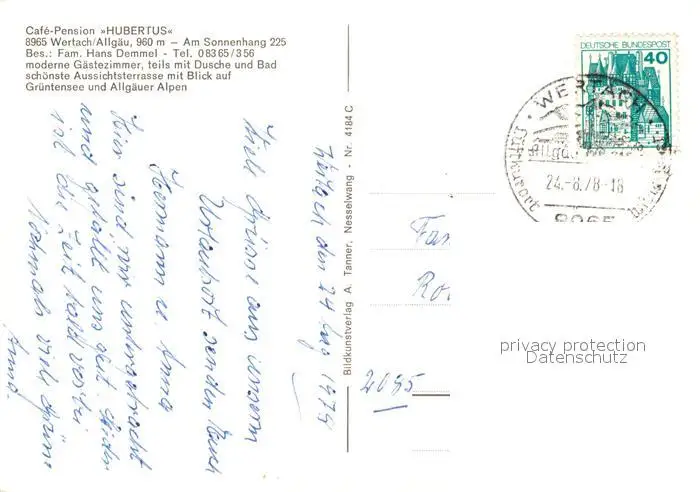 Café-Pension »HUBERTUS«
8965 Wertach/Allgäu, 960 m — Am Sonnenhang 225
Bes.: Fam. Hans Demmel - Tel. 08365/356
moderne Gästezimmer, teils mit Dusche und Bad
schönste Aussichtsterrasse mit Blick auf
Grüntensee und Allgäuer Alpen
den 24 Aug 1978
Viele Grüsse aus unserem
Urlaubsort senden Euch
Hermann u. Anna
Hier sind wir untergebracht
und gefällt uns gut. Leider
ist die Zeit bald vorbei
Nochmals viele Grüsse
Anna.
Bildkunstverlag A. Tanner, Nesselwang - Nr. 4184 C
DEUTSCHE BUNDESPOST
40
WERTACH
Allgäu
24.-8.78-18
8965
Luftkurort
Fam.
2085
privacy protection
Datenschutz